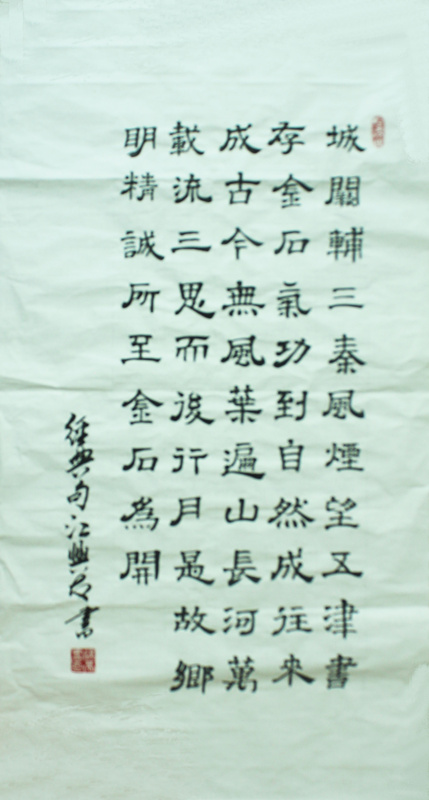 城闕輔三秦風煙望五津書
存金石氣功到自然成往來
成古今無風葉遍山長河萬
載流三思而後行月是故鄉
明精誠所至金石為開
經典句江興書